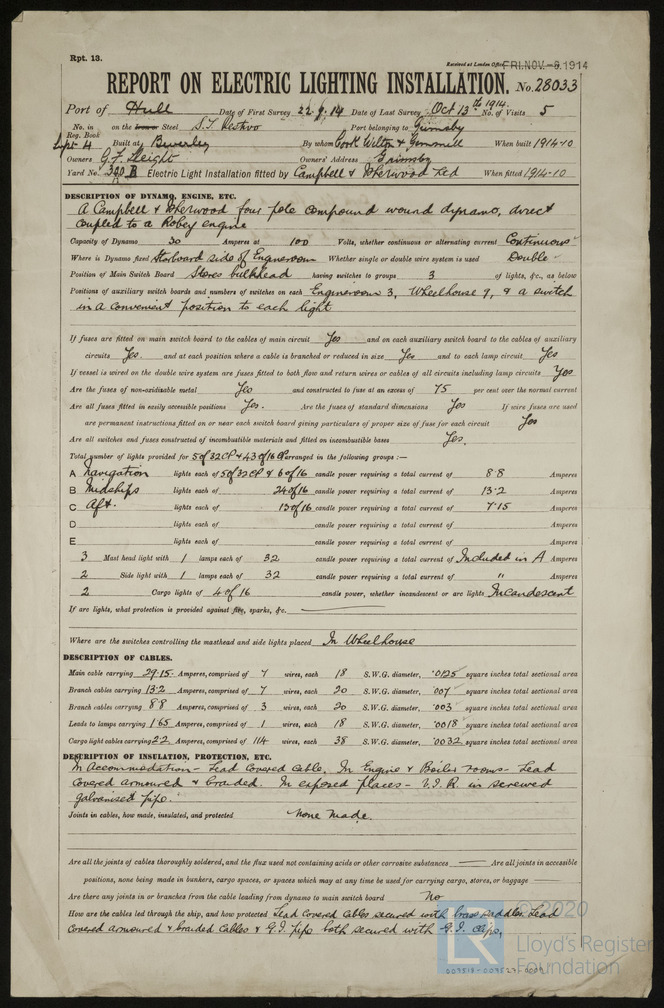 Rpt. 13.
Received at London Office FRI. NOV. -6. 1914
REPORT ON ELECTRIC LIGHTING INSTALLATION. No. 28033
Port of Hull Date of First Survey 22.9.14 Date of Last Survey Oct 13th 1914 No. of Visits 5
No. in Reg. Book Sept 4 on the Iron or Steel S.T. Port belonging to Grimsby
Built at Beverley By whom Cook Welton & Gemmell When built 1914-10
Owners G.F. Sleight Owners' Address Grimsby
Yard No. 300 B Electric Light Installation fitted by Campbell & Isherwood Ltd When fitted 1914-10
DESCRIPTION OF DYNAMO, ENGINE, ETC.
A Campbell & Isherwood four pole compound wound dynamo, direct
coupled to a Robey engine
Capacity of Dynamo 30 Amperes at 100 Volts, whether continuous or alternating current Continuous
Where is Dynamo fixed Starboard side of Engineroom Whether single or double wire system is used Double
Position of Main Switch Board Stores bulkhead having switches to groups 3 of lights, &c., as below
Positions of auxiliary switch boards and numbers of switches on each Engineroom 3, Wheelhouse 9, & a switch
in a convenient position to each light
If fuses are fitted on main switch board to the cables of main circuit Yes and on each auxiliary switch board to the cables of auxiliary
circuits Yes. and at each position where a cable is branched or reduced in size Yes and to each lamp circuit Yes
If vessel is wired on the double wire system are fuses fitted to both flow and return wires or cables of all circuits including lamp circuits Yes
Are the fuses of non-oxidizable metal Yes and constructed to fuse at an excess of 75 per cent over the normal current
Are all fuses fitted in easily accessible positions Yes. Are the fuses of standard dimensions Yes If wire fuses are used
are permanent instructions fitted on or near each switch board giving particulars of proper size of fuse for each circuit Yes
Are all switches and fuses constructed of incombustible materials and fitted on incombustible bases Yes.
Total number of lights provided for 5 of 32 CP & 43 of 16 CP arranged in the following groups :—
A Navigation lights each of 5 of 32 CP & 6 of 16 candle power requiring a total current of 8.8 Amperes
B Midships lights each of 24 of 16 candle power requiring a total current of 13.2 Amperes
C Aft. lights each of 13 of 16 candle power requiring a total current of 7.15 Amperes
D lights each of candle power requiring a total current of Amperes
E lights each of candle power requiring a total current of Amperes
3 Mast head light with 1 lamps each of 32 candle power requiring a total current of Included in A Amperes
2 Side light with 1 lamps each of 32 candle power requiring a total current of " Amperes
2 Cargo lights of 4 of 16 candle power, whether incandescent or arc lights Incandescent
If arc lights, what protection is provided against fire, sparks, &c.
Where are the switches controlling the masthead and side lights placed In Wheelhouse
DESCRIPTION OF CABLES.
Main cable carrying 29.15 Amperes, comprised of 7 wires, each 18 S.W.G. diameter, .0125 square inches total sectional area
Branch cables carrying 13.2 Amperes, comprised of 7 wires, each 20 S.W.G. diameter, .007 square inches total sectional area
Branch cables carrying 8.8 Amperes, comprised of 3 wires, each 20 S.W.G. diameter, .003 square inches total sectional area
Leads to lamps carrying 1.65 Amperes, comprised of 1 wires, each 18 S.W.G. diameter, .0018 square inches total sectional area
Cargo light cables carrying 2.2 Amperes, comprised of 114 wires, each 38 S.W.G. diameter, .0032 square inches total sectional area
DESCRIPTION OF INSULATION, PROTECTION, ETC.
In Accommodation - Lead Covered Cable. In Engine & Boiler rooms - Lead
Covered armoured & braided. In exposed places - V.I.R. in screwed
galvanised pipe.
Joints in cables, how made, insulated, and protected None made.
Are all the joints of cables thoroughly soldered, and the flux used not containing acids or other corrosive substances Are all joints in accessible
positions, none being made in bunkers, cargo spaces, or spaces which may at any time be used for carrying cargo, stores, or baggage
Are there any joints in or branches from the cable leading from dynamo to main switch board No
How are the cables led through the ship, and how protected Lead Covered Cables secured with brass saddles. Lead
Covered armoured & braided Cables & G.I. pipe both secured with G.I. clips,
© 2020
LR Lloyd's Register
Foundation
007518-007527-0009